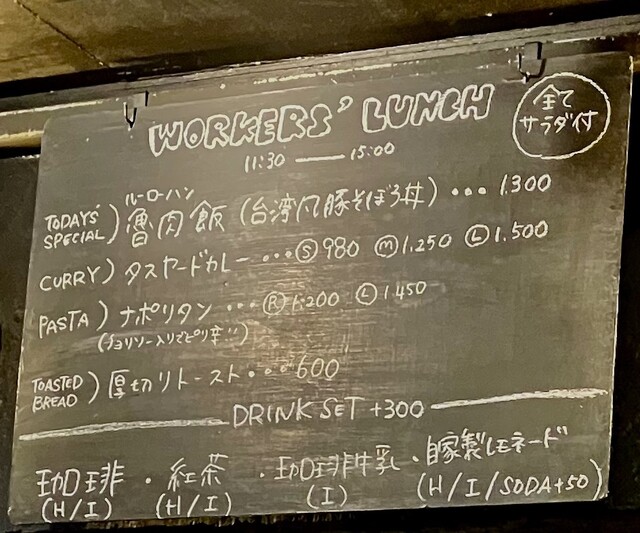 WORKERS' LUNCH
全て
サラダ付
11:30 — 15:00
ルーローハン
TODAY'S SPECIAL) 魯肉飯 (台湾風豚そぼろ丼) ・・・ 1300
CURRY) タスヤードカレー ・・・ Ⓢ980 Ⓜ1.250 Ⓛ1.500
PASTA) ナポリタン ・・・ Ⓡ1.200 Ⓛ1.450
(チョリソー入りでピリ辛!!)
TOASTED BREAD) 厚切りトースト・・・600
DRINK SET +300
珈琲 ・ 紅茶 ・ 珈琲牛乳 ・ 自家製レモネード
(H/I) (H/I) (I) (H/I/SODA+50)